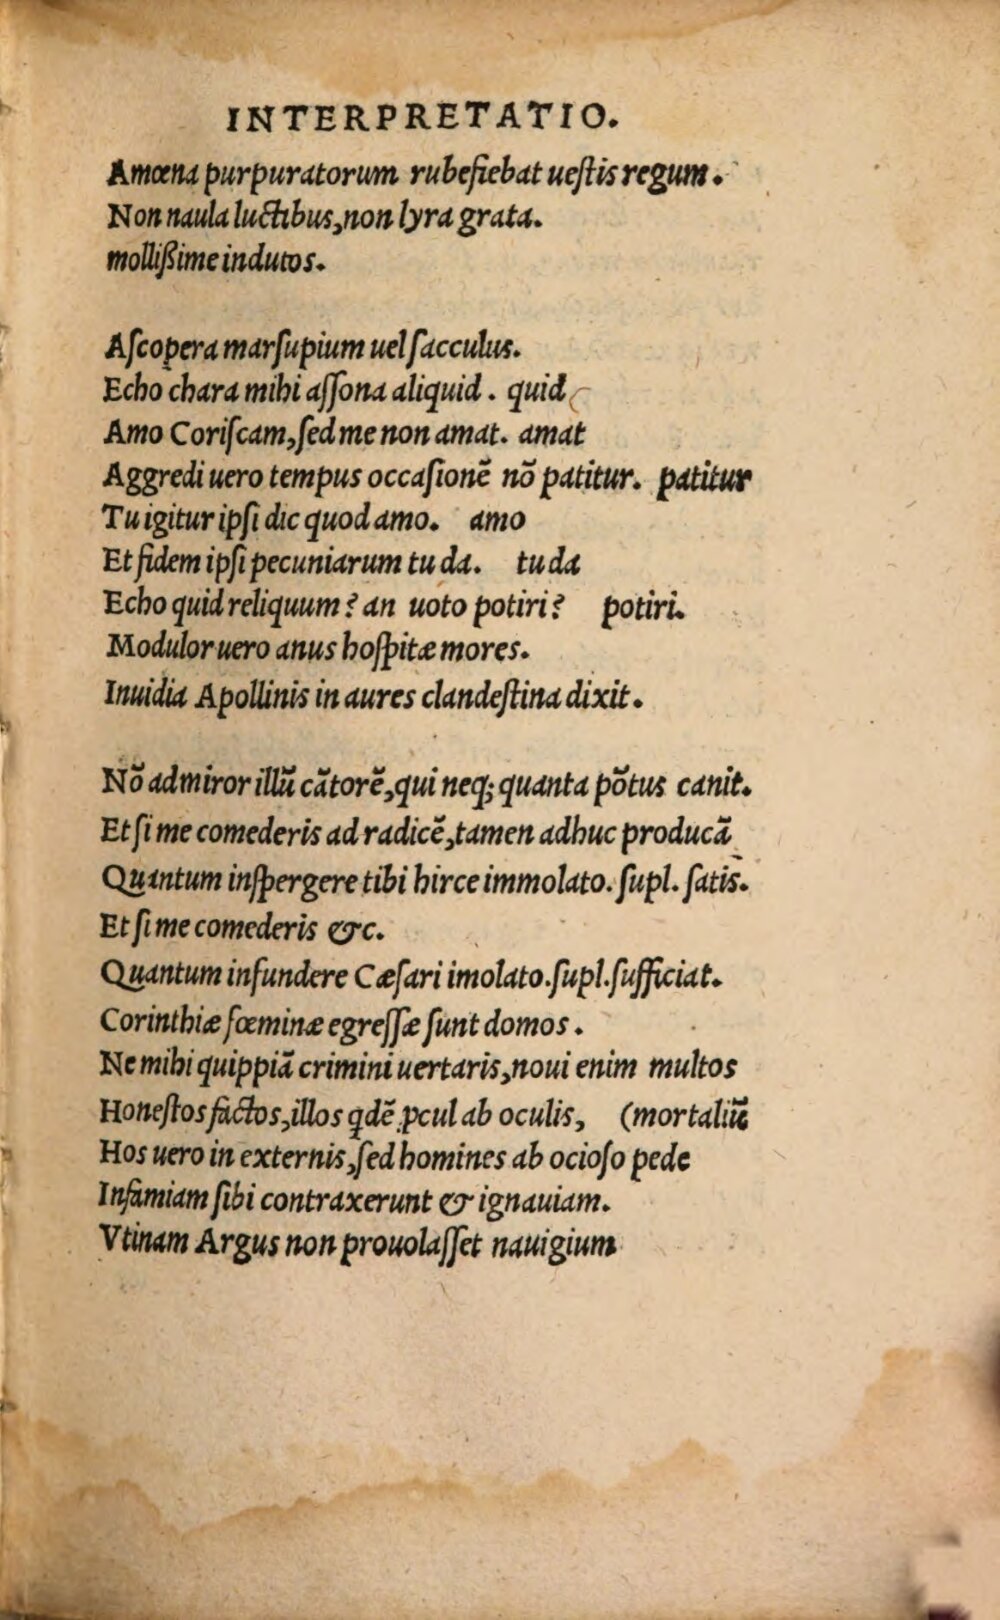 INTERPRETATIO.
Amœna purpuratorum rubefiebat ueſtis regum.
Non naula luctibus, non lyra grata.
molliſſime indutos.
Aſcopera marſupium uel ſacculus.
Echo chara mihi aſſona aliquid. quid
Amo Coriſcam, ſed me non amat. amat
Aggredi uero tempus occaſionẽ nõ patitur. patitur
Tu igitur ipſi dic quod amo. amo
Et fidem ipſi pecuniarum tu da. tu da
Echo quid reliquum? an uoto potiri? potiri.
Modulor uero anus hoſpitæ mores.
Inuidia Apollinis in aures clandeſtina dixit.
Nõ admiror illũ cãtorẽ, qui neq; quanta põtus canit.
Et ſi me comederis ad radicẽ, tamen adhuc producã
Quantum inſpergere tibi hirce immolato. ſupl. ſatis.
Et ſi me comederis &c.
Quantum infundere Cæſari imolato. ſupl. ſufficiat.
Corinthiæ fœminæ egreſſæ ſunt domos.
Ne mihi quippiã crimini uertaris, noui enim multos
Honeſtos factos, illos qdẽ pcul ab oculis, (mortaliũ
Hos uero in externis, ſed homines ab ocioſo pede
Infamiam ſibi contraxerunt & ignauiam.
Vtinam Argus non prouolaſſet nauigium